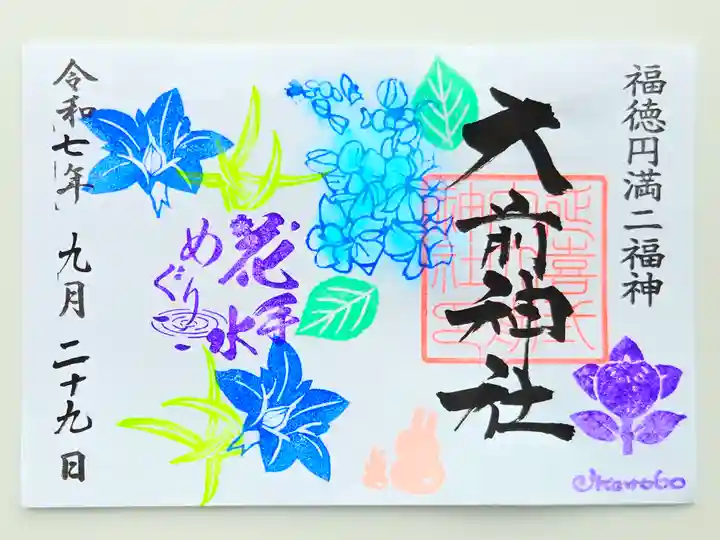 福徳円満二福神
大前神社
延喜式内
神社
花手水
めぐり
令和七年 九月 二十九日
Ikenobo